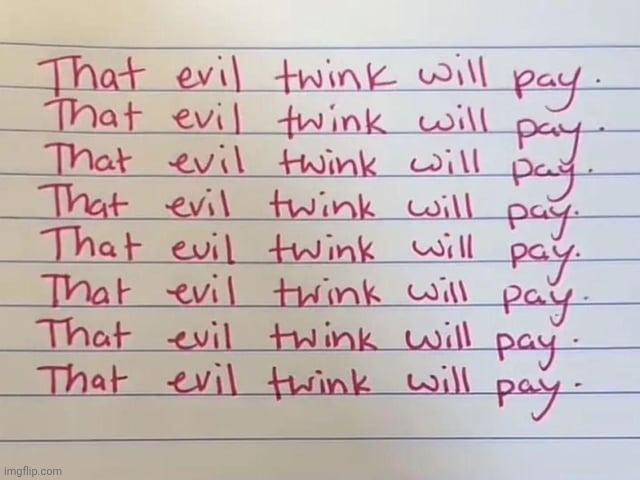 That evil twink will pay.
That evil twink will pay.
That evil twink will pay.
That evil twink will pay.
That evil twink will pay.
That evil twink will pay.
That evil twink will pay.
That evil twink will pay.
imgflip.com